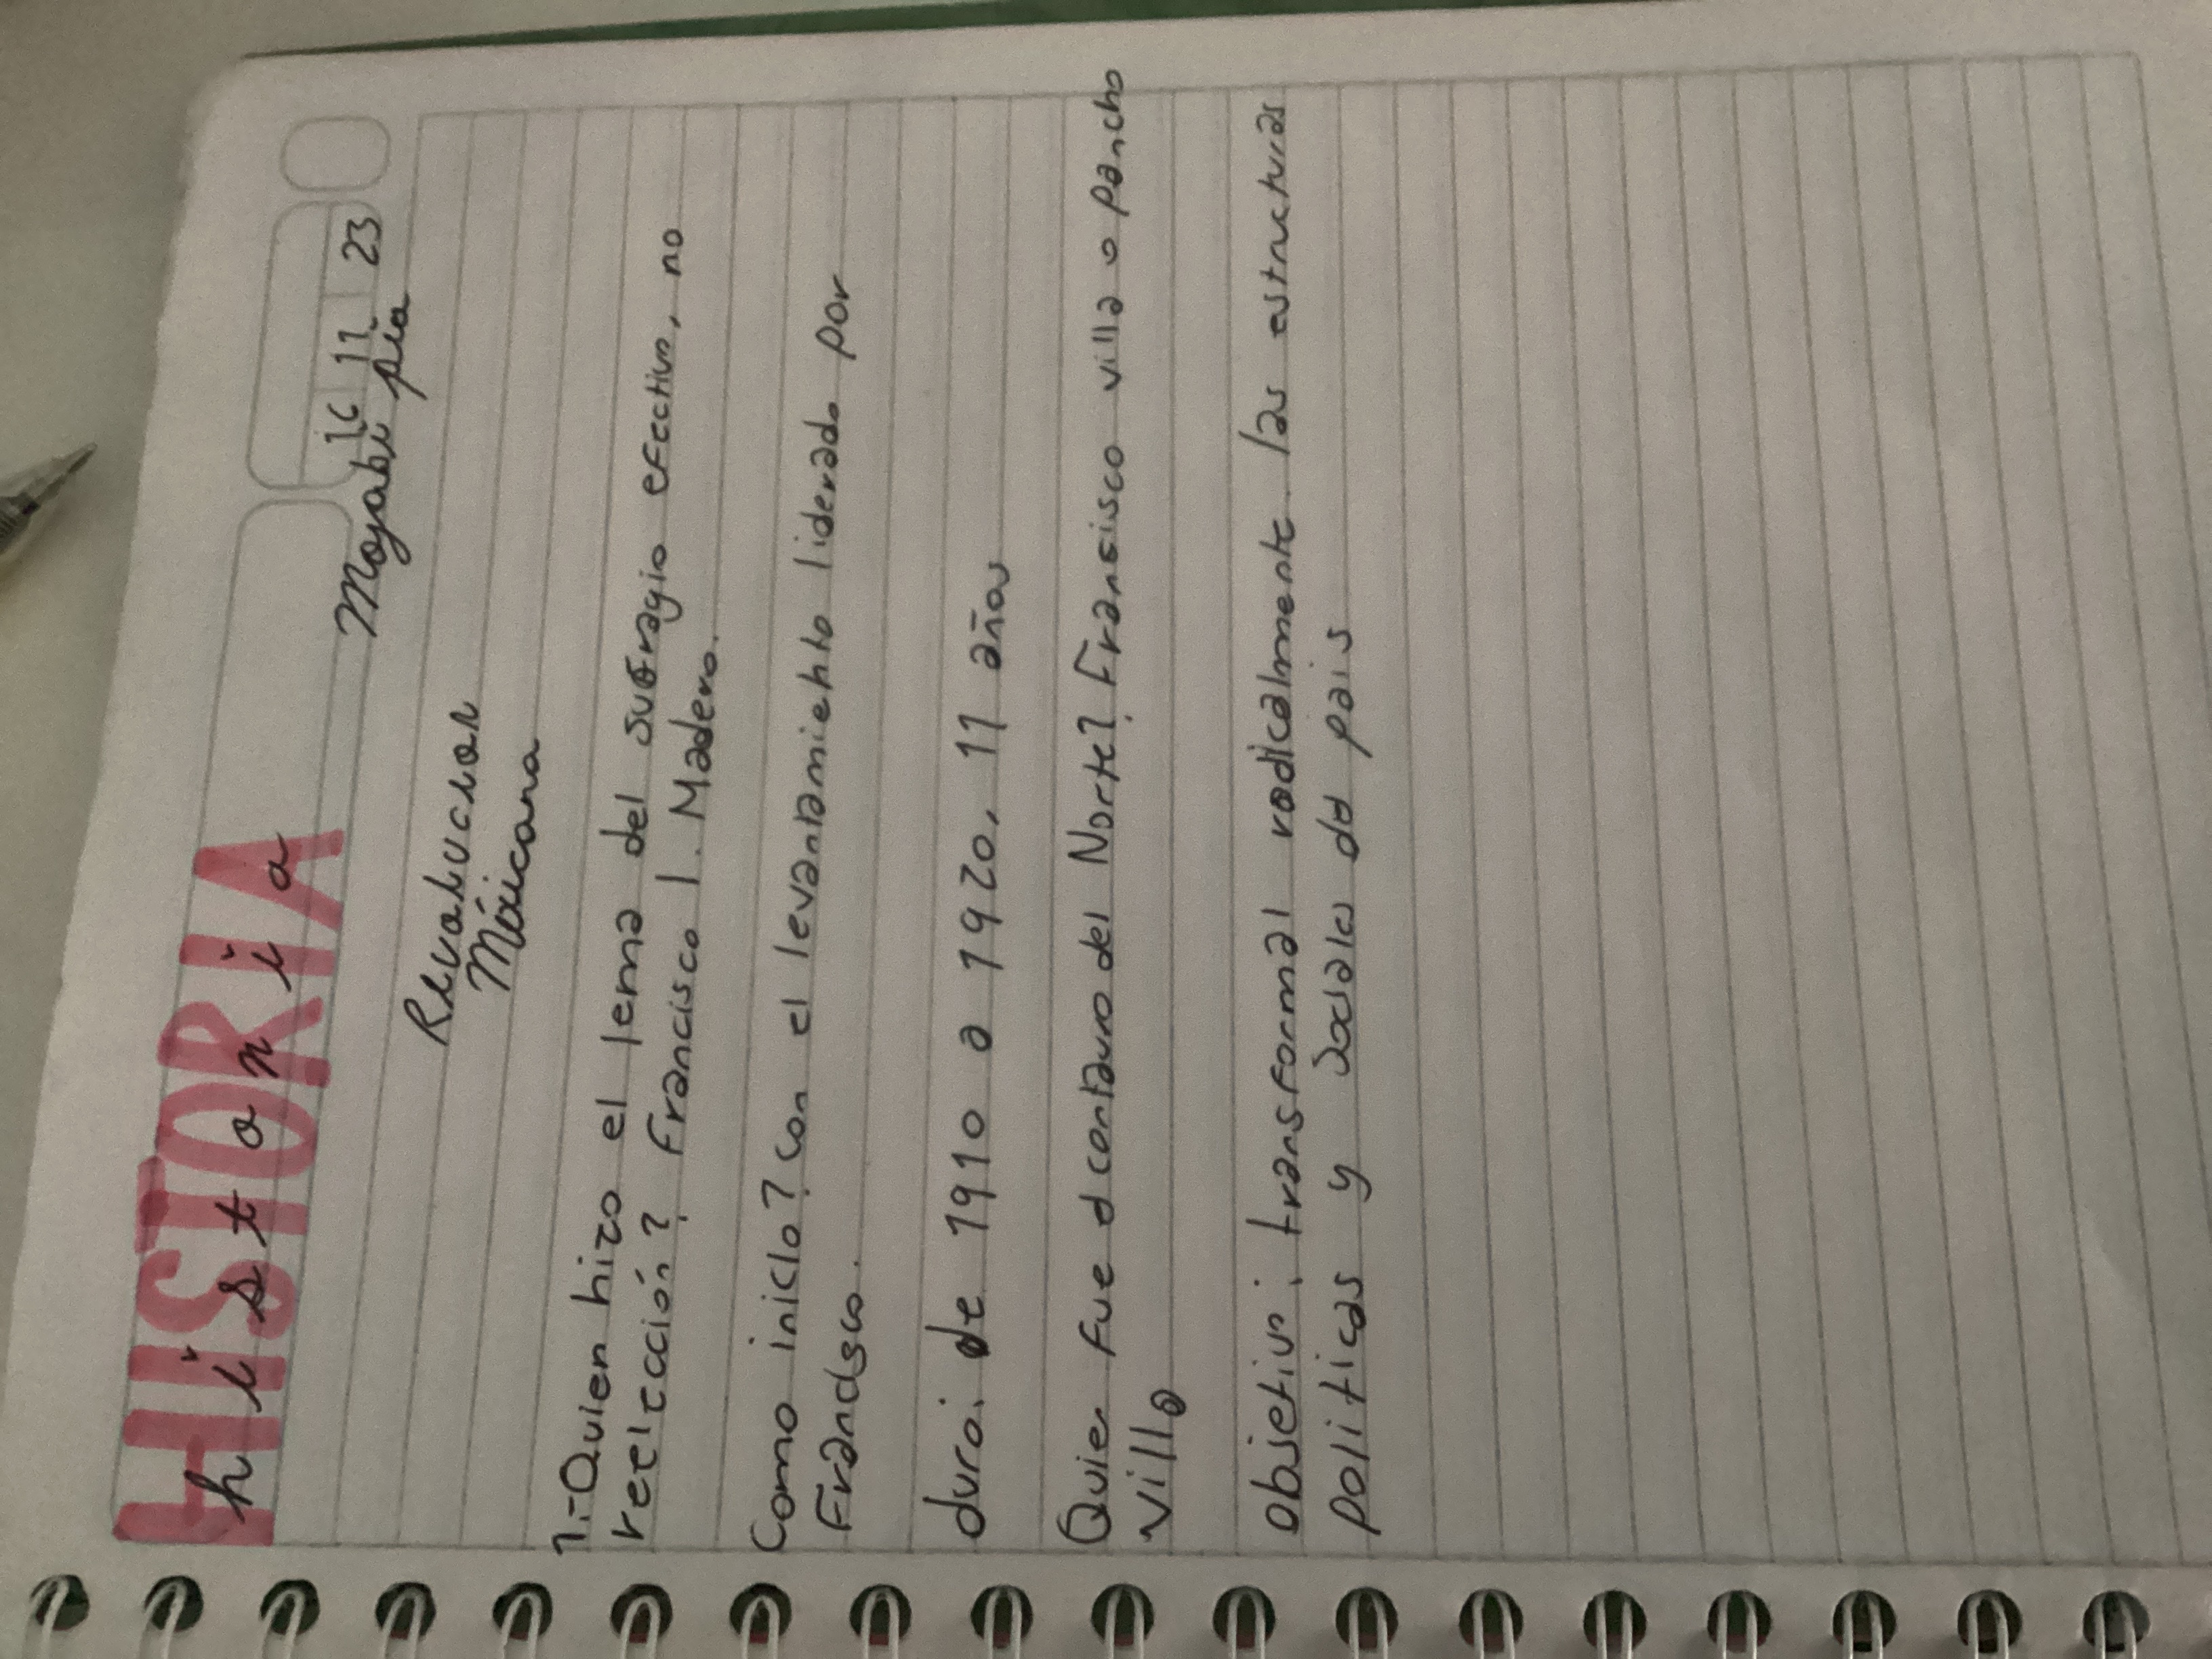 HISTORIA
historia
16 11 23
Mojabi pia
Revolucion
Méxicana
1.-Quien hizo el lema del sufragio efectivo, no
reelección? Francisco I. Madero.
Como inicio? con el levantamiento liderado por
Francisco.
duro: de 1910 a 1920, 11 años
Quien fue el contauro del Norte? Fransisco villa o pancho
villa
objetivo: transformal radicalmente las estructuras
politicas y sociales del pais